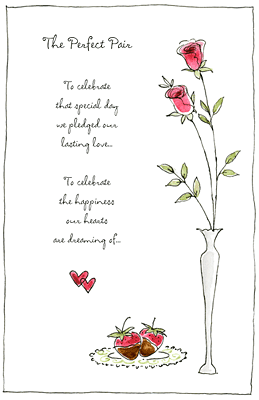 The Perfect Pair
To celebrate
that special day
we pledged our
lasting love...
To celebrate
the happiness
our hearts
are dreaming of...